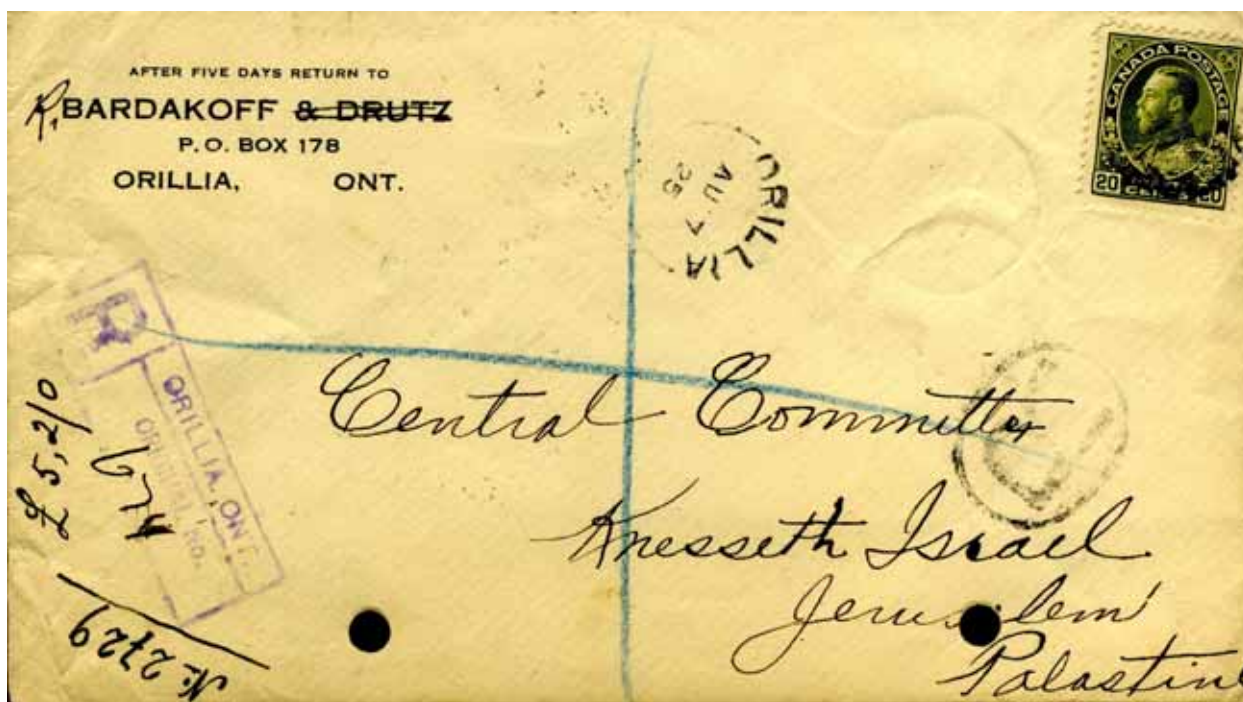 AFTER FIVE DAYS RETURN TO
R. BARDAKOFF & DRUTZ
P.O. BOX 178
ORILLIA, ONT.
CANADA POSTAGE
20 CENTS 20
ORILLIA
AU 7
25
R
ORILLIA, ONT.
ORIGINAL No.
£ 5,2/0
№ 2729
Central Committee
Knesseth Israel
Jerusalem
Palastine